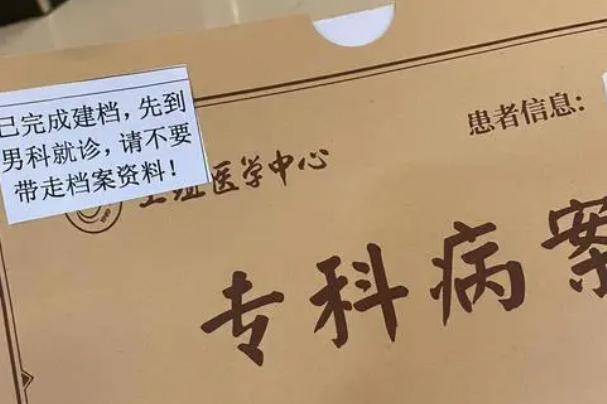 已完成建档，先到
男科就诊，请不要
带走档案资料！
患者信息：
生殖医学中心
专科病案